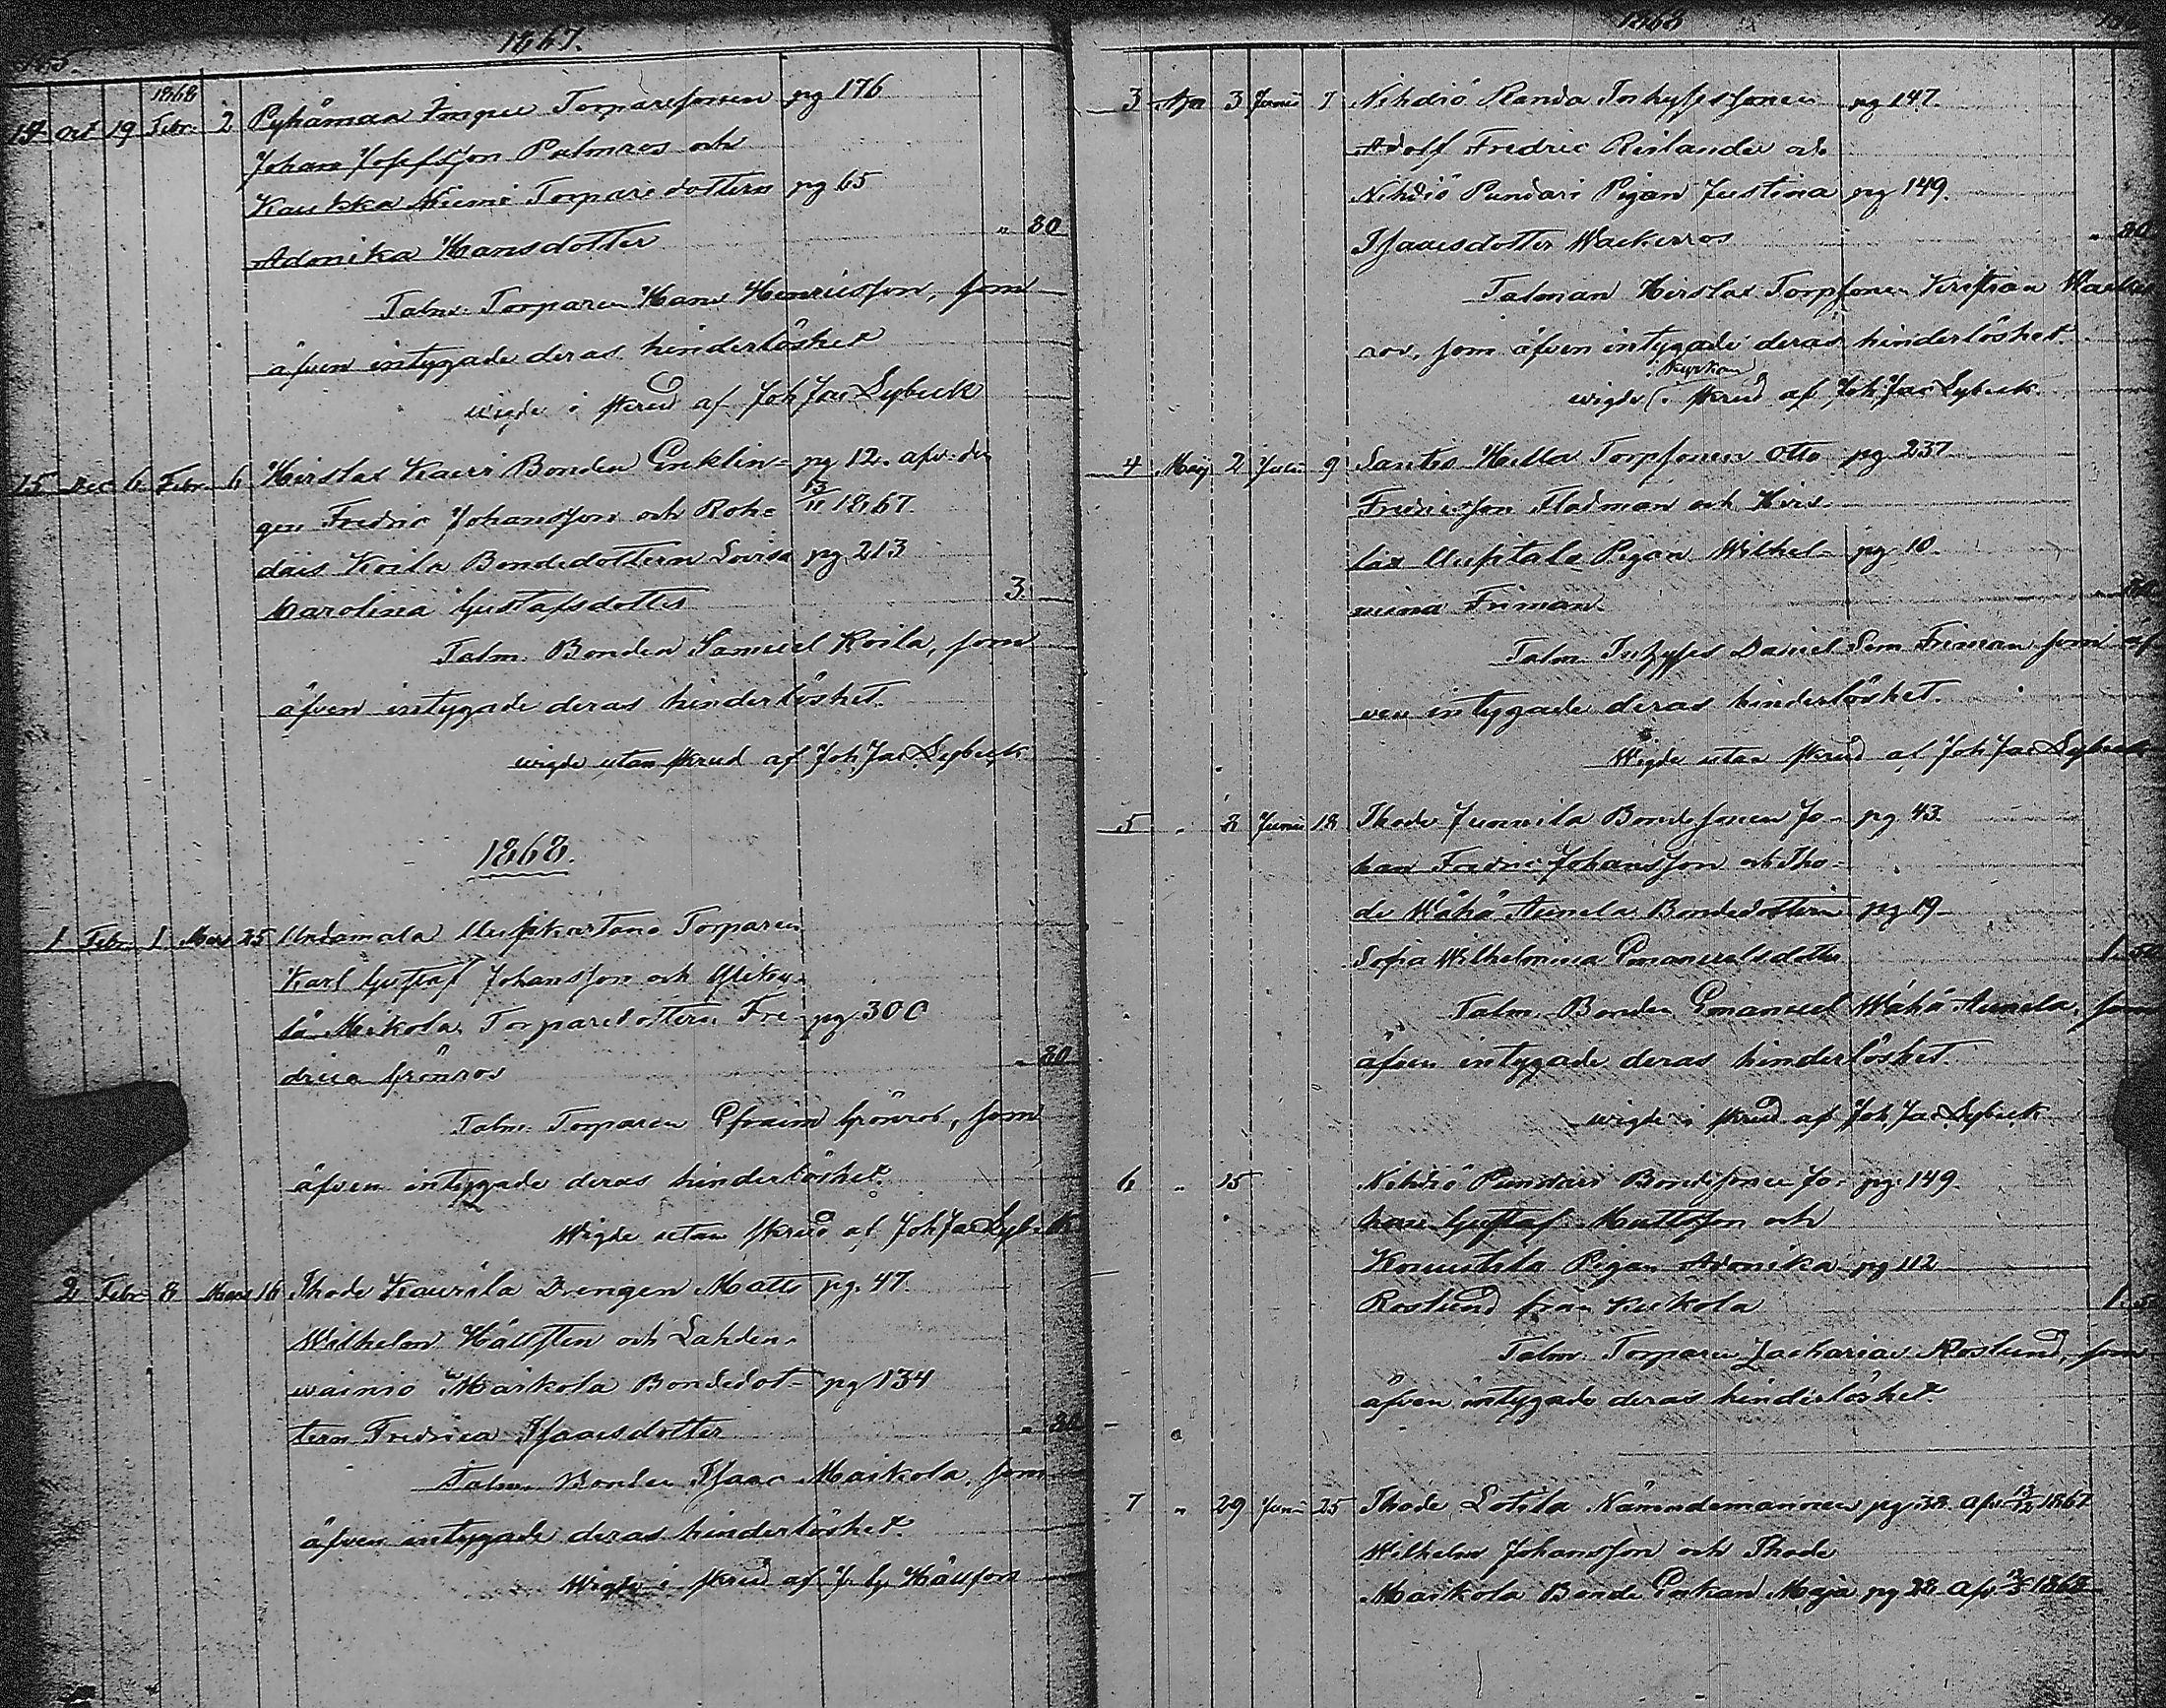 1867.
145.
1868
14 Oct 19 Febr. 2 Pyhämaa Torparesonen pg 176
Johan Josefsson Palmros och
Kaukka Niemi Torparedottern pg 65
Adonika Hansdotter " 80
Talm. Torparen Hans Henricsson, som
äfven intygade deras hinderlöshet
wigde i skrud af Joh Jac Lybeck
15 Dec 6 Febr. 6 Hirslax Kauri Bonden Enklin- pg 12. afv. den
gen Fredric Johansson och Roh- 13/11 1867.
dais Koila Bondedottern Lovisa pg 213
Karolina Gustafsdotter 3.
Talm. Bonden Samuel Koila, som
äfven intygade deras hinderlöshet.
wigde utan skrud af Joh Jac Lybeck
1868.
1 Febr. 1 Mars 25 Untamala Uusikartano Torparen
Karl Gustaf Johansson och
lä Mikola Torparedottern Fre- pg 300
drica Grönros " 80
Talm. Torparen Efraim Grönros, som
äfven intygade deras hinderlöshet.
Wigde utan skrud af Joh Jac Lybeck
2 Febr 8 Mars 16 Thode Kaurila Drengen Matts pg. 47.
Wilhelm Hällsten och Lahden-
wainio Maikola Bondedot- pg 134
tern Fredrica Isaacsdotter " 80
Talm. Bonden Isaac Maikola, som
äfven intygade deras hinderlöshet.
Wigde i skrud af J. G. Hällfors
1868
3 Apr 3 Junii 7 Nihdiö Randa Inhysessonen pg 147.
Adolf Fredric Reilander och
Nihdiö Pundari Pigan Justina pg 149.
Isaacsdotter Wackerros " 80
Talman Hirslax Torpsonen Kristian Wacker
ros, som äfven intygade deras hinderlöshet.
i kyrkan
wigde i skrud af Joh Jac Lybeck.
4 Maj 2 Julii 9 Santio Torpsonen Otto pg 237
Fredricsson Flodman och Hirs-
lax Uusitalo Pigan Wilhel- pg 10
mina Friman. " 80
Talm. Inhyses Daniel Sem Friman som äf-
ven intygade deras hinderlöshet.
Wigde utan skrud af Joh Jac Lybeck
5 " 8 Junii 18 Thode Junnila Bondesonen Jo- pg 43.
han Fredric Johansson och Tho-
de Wähä Aunela Bondedottern pg 19
Sofia Wilhelmina Emanuelsdotter 1. 50
Talm. Bonden Emanuel Wähä Aunela, som
äfven intygade deras hinderlöshet.
wigde i skrud af Joh Jac Lybeck
6 " 15 Nihdiö Pundari Bondesonen Jo- pg. 149.
han Gustaf Mattsson och
Pigan Adonika pg 112
Roslund från Kukola 1. 5
Talm. Torparen Zacharias Roslund, som
äfven intygade deras hinderlöshet.
7 " 29 Junii 25 Thode Lotila Nämndemannen pg 38. afv. 13/12 1867
Wilhelm Johansson och Thode
Maikola Bonde Enkan Maja pg 28. afv. 1868